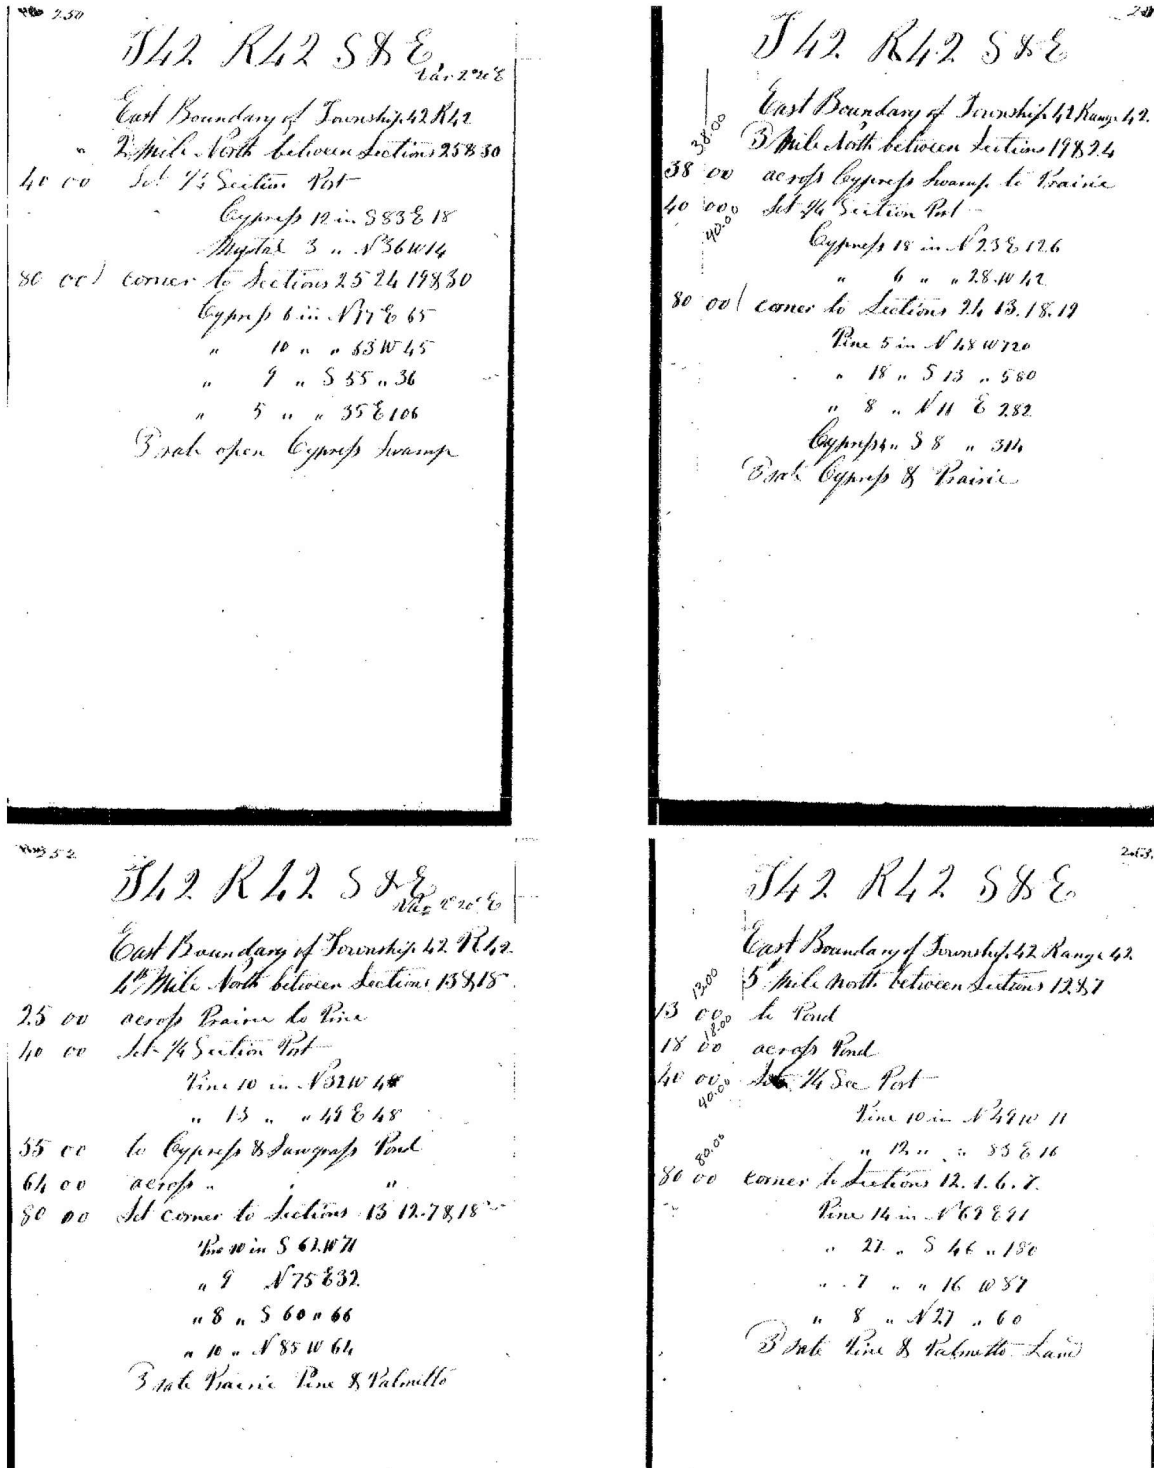 250
T42 R42 S & E
Var 2°20' E
East Boundary of Township 42 R42
" 2 Mile North between Sections 25 & 30
40 00 Set 1/4 Section Post
Cypress 12 in S 83 E 18
3 " N 36 W 14
80 00 corner to Sections 25 24 19 & 30
Cypress 6 in N 17 E 65
" 10 " " 63 W 45
" 9 " S 55 " 36
" 5 " " 35 E 106
3 rate open Cypress Swamp
T42 R42 S & E
East Boundary of Township 42 Range 42.
3 Mile North between Sections 19 & 24
38.00
38 00 across Cypress Swamp to Prairie
40 00 Set 1/4 Section Post
40.00
Cypress 18 in N 23 E 126
" 6 " " 28 W 42
80 00 corner to Sections 24 13. 18. 19
Pine 5 in N 48 W 720
" 18 " S 13 " 580
" 8 " N 11 E 282
Cypress 4 " S 8 " 314
3 rate Cypress & Prairie
252
T42 R42 S & E
Var 2°20' E
East Boundary of Township 42 R42.
4th Mile North between Sections 13 & 18
25 00 across Prairie to Pine
40 00 Set 1/4 Section Post
Pine 10 in N 32 W 48
" 13 " " 49 E 48
55 00 to Cypress & Sawgrass Pond
64 00 across " " "
80 00 Set corner to Sections 13 12. 7 & 18
Pine 10 in S 62 W 71
" 9 N 75 E 32
" 8 " S 60 " 66
" 10 " N 85 W 64
3 rate Prairie Pine & Palmetto
253.
T42 R42 S & E
East Boundary of Township 42 Range 42
5th Mile North between Sections 12 & 7
13.00
13 00 to Pond
18.00
18 00 across Pond
40 00 Set 1/4 Sec Post
40.00
Pine 10 in N 49 W 11
" 12 " " 83 E 16
80.00
80 00 corner to Sections 12. 1. 6. 7.
Pine 14 in N 69 E 91
" 27 " S 46 " 150
" 7 " " 16 W 87
" 8 " N 27 " 60
3 rate Pine & Palmetto Land